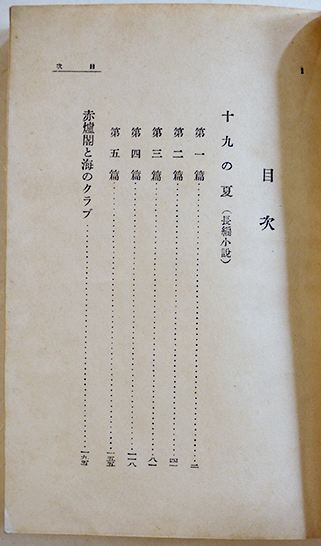 目次
目次
十九の夏（長編小説）
第一篇……二
第二篇……四一
第三篇……八一
第四篇……一一八
第五篇……一五五
赤爐閣と海のクラブ……一九五